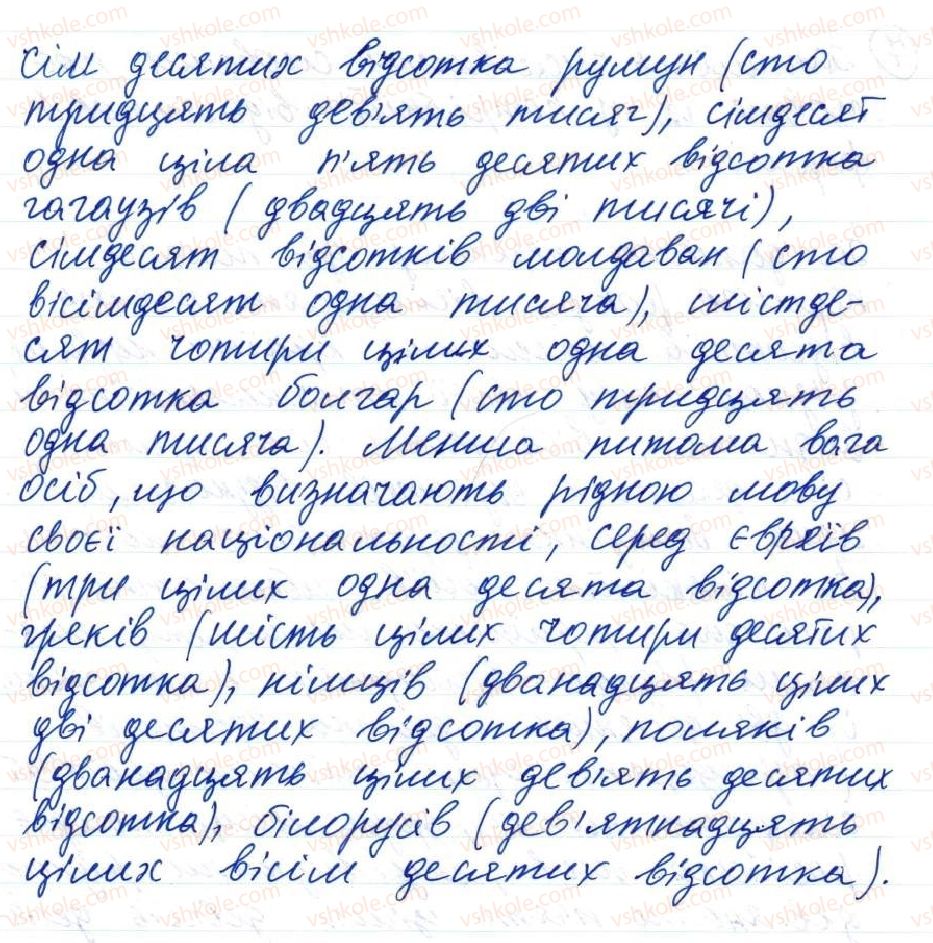 сім десятих відсотка румун (сто
тридцять дев'ять тисяч), сімдесят
одна ціла п'ять десятих відсотка
гагаузів (двадцять дві тисячі),
сімдесят відсотків молдаван (сто
вісімдесят одна тисяча), шістде-
сят чотири цілих одна десята
відсотка болгар (сто тридцять
одна тисяча). Менша питома вага
осіб, що визначають рідною мову
своєї національності, серед євреїв
(три цілих одна десята відсотка),
греків (шість цілих чотири десятих
відсотка), німців (дванадцять цілих
дві десятих відсотка), поляків
(дванадцять цілих дев'ять десятих
відсотка), білорусів (дев'ятнадцять
цілих вісім десятих відсотка).